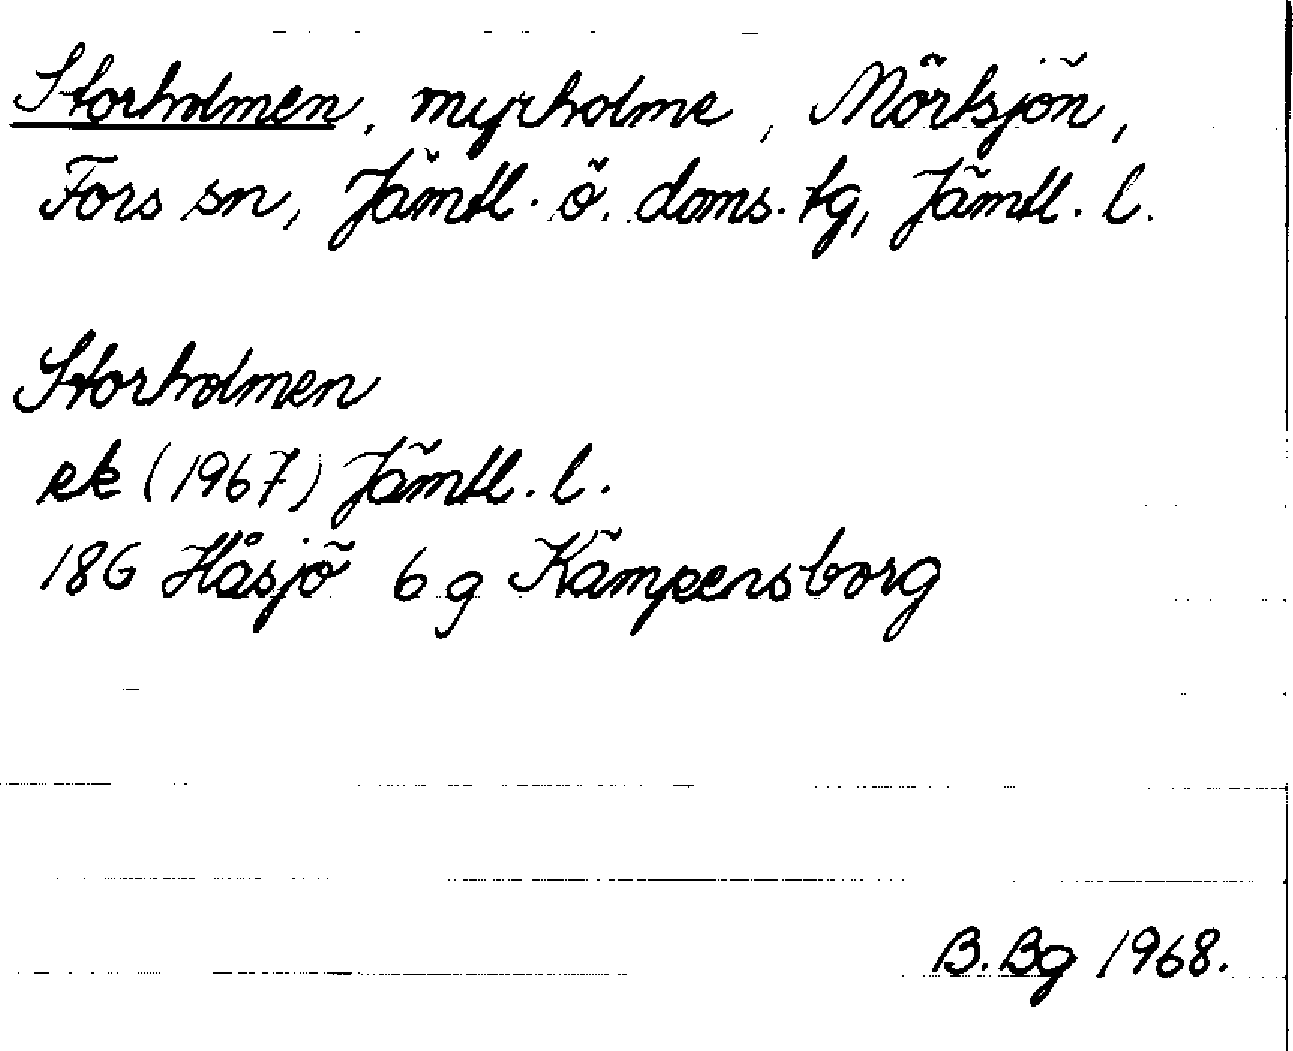 Storholmen, myrholme, Mörtsjön,
Fors sn, Jämtl. ö. doms. tg, Jämtl. l.
Storholmen
ek (1967) Jämtl. l.
18G Håsjö 6 g Kämpensborg
B. Bg 1968.